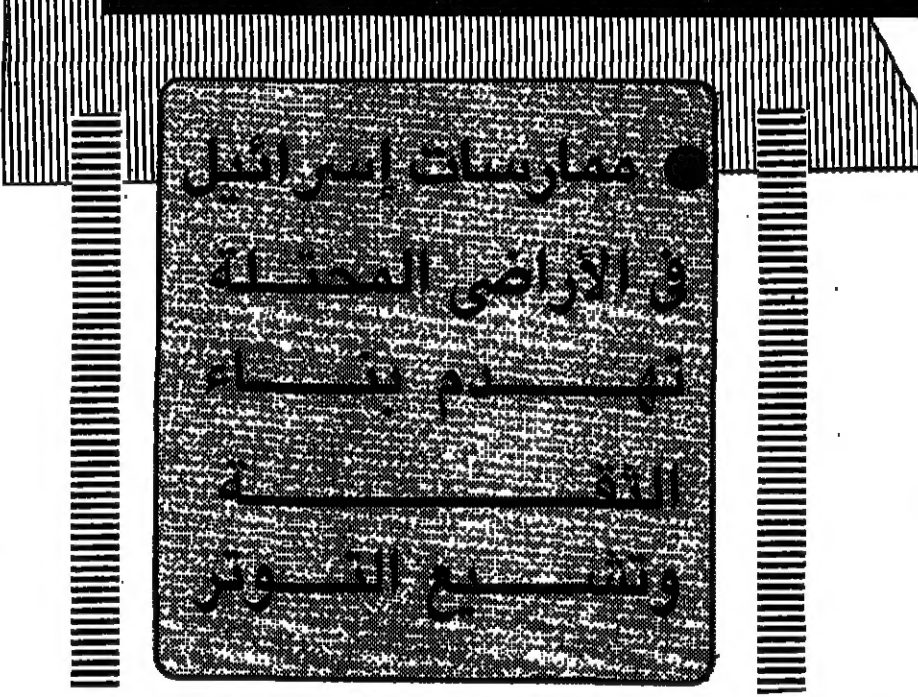 ● ممارسات إسرائيل
في الأراضي المحتلة
تهدم بناء
الثقة
وتشيع التوتر